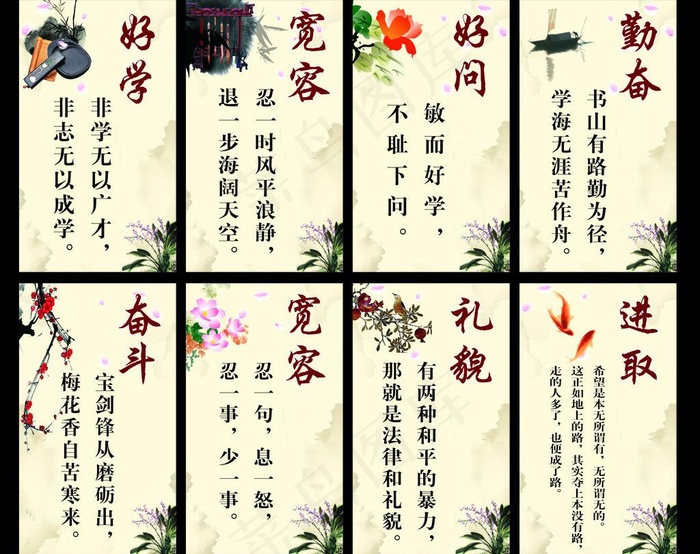 好学
非学无以广才，
非志无以成学。
宽容
忍一时风平浪静，
退一步海阔天空。
好问
敏而好学，
不耻下问。
勤奋
书山有路勤为径，
学海无涯苦作舟。
奋斗
宝剑锋从磨砺出，
梅花香自苦寒来。
宽容
忍一句，息一怒，
忍一事，少一事。
礼貌
有两种和平的暴力，
那就是法律和礼貌。
进取
希望是本无所谓有，无所谓无的。
这正如地上的路，其实夺上本没有路，
走的人多了，也便成了路。